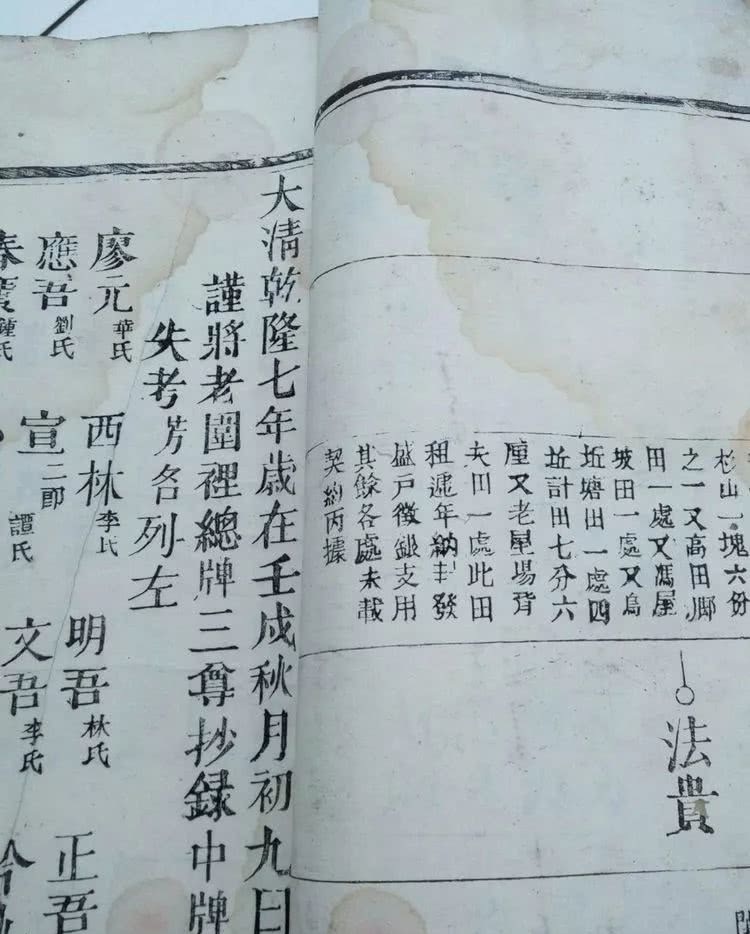 杉山一塊六份
之一又高田鄉
田一處又馮屋
坡田一處又烏
坵塘田一處四
坵計田七分六
厘又老屋場背
夫田一處此田
租遞年納丰發
盛戶徵銀支用
其餘各處未載
契約丙據
法貴
大清乾隆七年歲在壬戌秋月初九日
謹將老圍裡總牌三尊抄錄中牌
失考芳各列左
廖元華氏 西林李氏 明吾林氏 正吾
應吾劉氏 宣二郎譚氏 文吾李氏
春慶鍾氏